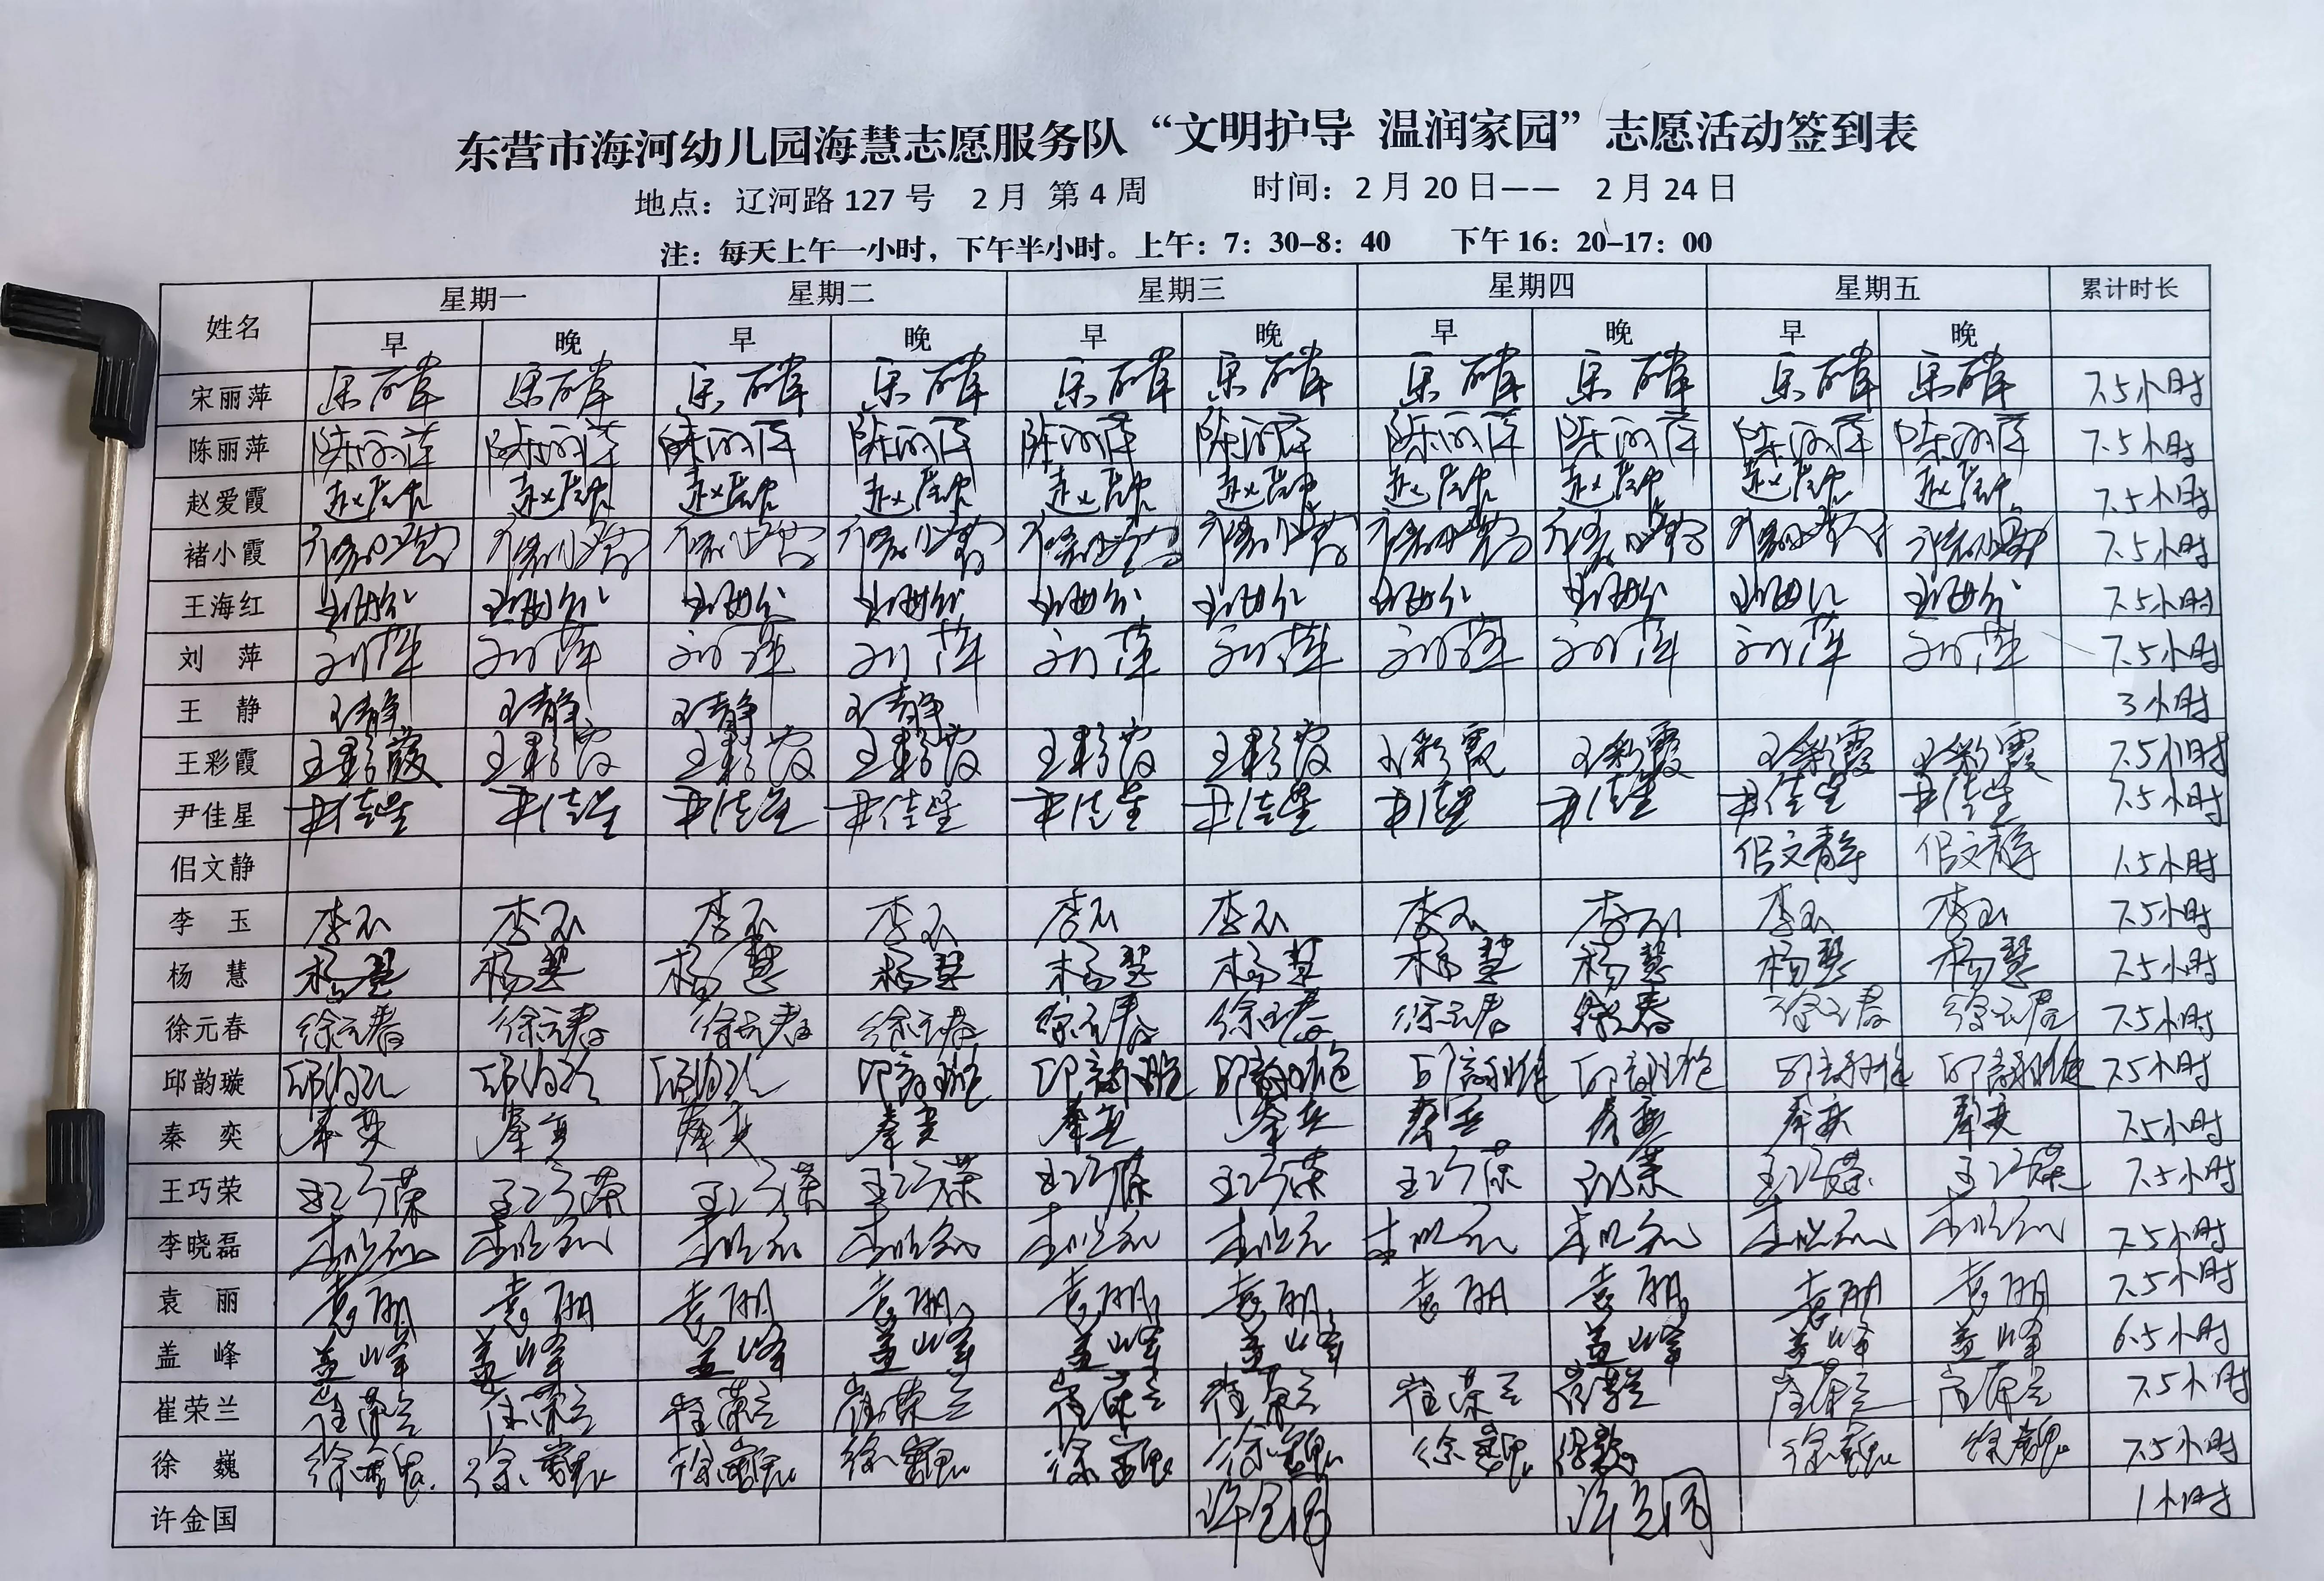 东营市海河幼儿园海慧志愿服务队“文明护导 温润家园”志愿活动签到表
地点：辽河路 127 号 2 月 第 4 周 时间：2 月 20 日—— 2 月 24 日
注：每天上午一小时，下午半小时。上午：7：30-8：40 下午 16：20-17：00
姓名 星期一 星期二 星期三 星期四 星期五 累计时长
早 晚 早 晚 早 晚 早 晚 早 晚
宋丽萍 宋丽萍 宋丽萍 宋丽萍 宋丽萍 宋丽萍 宋丽萍 宋丽萍 宋丽萍 宋丽萍 宋丽萍 7.5小时
陈丽萍 陈丽萍 陈丽萍 陈丽萍 陈丽萍 陈丽萍 陈丽萍 陈丽萍 陈丽萍 陈丽萍 陈丽萍 7.5小时
赵爱霞 赵爱霞 赵爱霞 赵爱霞 赵爱霞 赵爱霞 赵爱霞 赵爱霞 赵爱霞 赵爱霞 赵爱霞 7.5小时
褚小霞 褚小霞 褚小霞 褚小霞 褚小霞 褚小霞 褚小霞 褚小霞 褚小霞 褚小霞 褚小霞 7.5小时
王海红 王海红 王海红 王海红 王海红 王海红 王海红 王海红 王海红 王海红 王海红 7.5小时
刘 萍 刘萍 刘萍 刘萍 刘萍 刘萍 刘萍 刘萍 刘萍 刘萍 刘萍 7.5小时
王 静 王静 王静 王静 王静 3小时
王彩霞 王彩霞 王彩霞 王彩霞 王彩霞 王彩霞 王彩霞 王彩霞 王彩霞 王彩霞 王彩霞 7.5小时
尹佳星 尹佳星 尹佳星 尹佳星 尹佳星 尹佳星 尹佳星 尹佳星 尹佳星 尹佳星 尹佳星 7.5小时
佀文静 佀文静 佀文静 1.5小时
李 玉 李玉 李玉 李玉 李玉 李玉 李玉 李玉 李玉 李玉 李玉 7.5小时
杨 慧 杨慧 杨慧 杨慧 杨慧 杨慧 杨慧 杨慧 杨慧 杨慧 杨慧 7.5小时
徐元春 徐元春 徐元春 徐元春 徐元春 徐元春 徐元春 徐元春 徐元春 徐元春 徐元春 7.5小时
邱韵璇 邱韵璇 邱韵璇 邱韵璇 邱韵璇 邱韵璇 邱韵璇 邱韵璇 邱韵璇 邱韵璇 邱韵璇 7.5小时
秦 奕 秦奕 秦奕 秦奕 秦奕 秦奕 秦奕 秦奕 秦奕 秦奕 秦奕 7.5小时
王巧荣 王巧荣 王巧荣 王巧荣 王巧荣 王巧荣 王巧荣 王巧荣 王巧荣 王巧荣 王巧荣 7.5小时
李晓磊 李晓磊 李晓磊 李晓磊 李晓磊 李晓磊 李晓磊 李晓磊 李晓磊 李晓磊 李晓磊 7.5小时
袁 丽 袁丽 袁丽 袁丽 袁丽 袁丽 袁丽 袁丽 袁丽 袁丽 袁丽 7.5小时
盖 峰 盖峰 盖峰 盖峰 盖峰 盖峰 盖峰 盖峰 盖峰 盖峰 6.5小时
崔荣兰 崔荣兰 崔荣兰 崔荣兰 崔荣兰 崔荣兰 崔荣兰 崔荣兰 崔荣兰 崔荣兰 崔荣兰 7.5小时
徐 巍 徐巍 徐巍 徐巍 徐巍 徐巍 徐巍 徐巍 徐巍 徐巍 徐巍 7.5小时
许金国 许金国 许金国 1小时